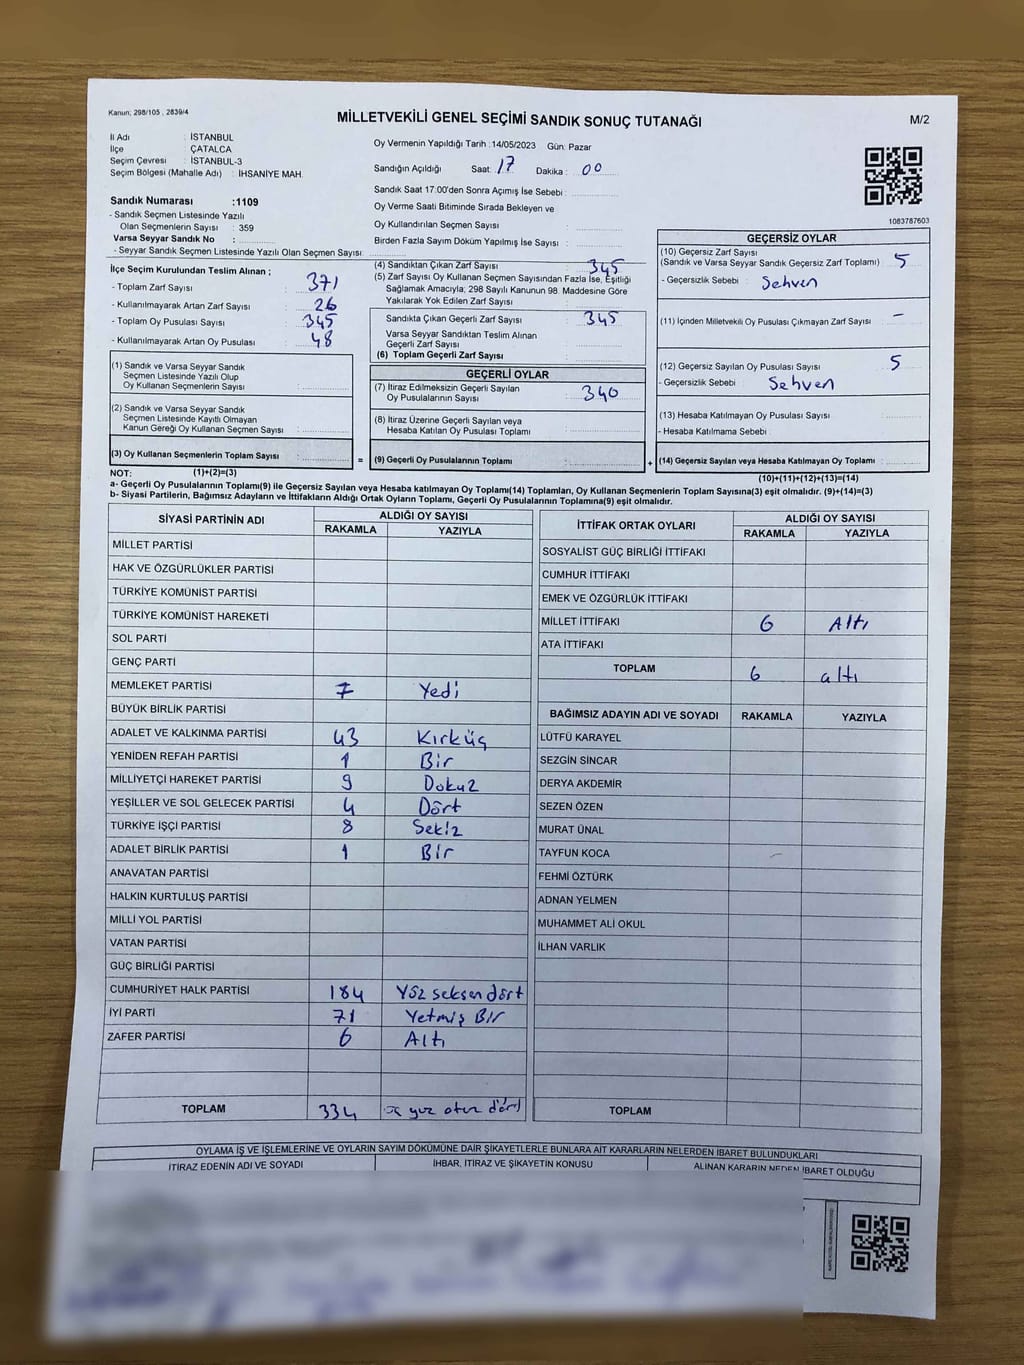 Kanun; 298/105 , 2839/4
MİLLETVEKİLİ GENEL SEÇİMİ SANDIK SONUÇ TUTANAĞI
M/2
İl Adı : İSTANBUL
İlçe : ÇATALCA
Seçim Çevresi : İSTANBUL-3
Seçim Bölgesi (Mahalle Adı) : İHSANİYE MAH.
Oy Vermenin Yapıldığı Tarih :14/05/2023 Gün: Pazar
Sandığın Açıldığı Saat: 17 Dakika : 00
Sandık Saat 17:00'den Sonra Açımış İse Sebebi :
Oy Verme Saati Bitiminde Sırada Bekleyen ve
Oy Kullandırılan Seçmen Sayısı :
Birden Fazla Sayım Döküm Yapılmış İse Sayısı :
1083787603
Sandık Numarası :1109
- Sandık Seçmen Listesinde Yazılı
Olan Seçmenlerin Sayısı : 359
Varsa Seyyar Sandık No :
- Seyyar Sandık Seçmen Listesinde Yazılı Olan Seçmen Sayısı
İlçe Seçim Kurulundan Teslim Alınan ;
- Toplam Zarf Sayısı : 371
- Kullanılmayarak Artan Zarf Sayısı : 26
- Toplam Oy Pusulası Sayısı : 345
- Kullanılmayarak Artan Oy Pusulası : 48
(1) Sandık ve Varsa Seyyar Sandık
Seçmen Listesinde Yazılı Olup
Oy Kullanan Seçmenlerin Sayısı :
(2) Sandık ve Varsa Seyyar Sandık
Seçmen Listesinde Kayıtlı Olmayan
Kanun Gereği Oy Kullanan Seçmen Sayısı :
(3) Oy Kullanan Seçmenlerin Toplam Sayısı :
=
(4) Sandıktan Çıkan Zarf Sayısı : 345
(5) Zarf Sayısı Oy Kullanan Seçmen Sayısından Fazla İse, Eşitliği
Sağlamak Amacıyla; 298 Sayılı Kanunun 98. Maddesine Göre
Yakılarak Yok Edilen Zarf Sayısı :
Sandıkta Çıkan Geçerli Zarf Sayısı : 345
Varsa Seyyar Sandıktan Teslim Alınan
Geçerli Zarf Sayısı :
(6) Toplam Geçerli Zarf Sayısı :
GEÇERLİ OYLAR
(7) İtiraz Edilmeksizin Geçerli Sayılan
Oy Pusulalarının Sayısı : 340
(8) İtiraz Üzerine Geçerli Sayılan veya
Hesaba Katılan Oy Pusulası Toplamı :
(9) Geçerli Oy Pusulalarının Toplamı :
+
GEÇERSİZ OYLAR
(10) Geçersiz Zarf Sayısı
(Sandık ve Varsa Seyyar Sandık Geçersiz Zarf Toplamı) : 5
- Geçersizlik Sebebi : Sehven
(11) İçinden Milletvekili Oy Pusulası Çıkmayan Zarf Sayısı : -
(12) Geçersiz Sayılan Oy Pusulası Sayısı : 5
- Geçersizlik Sebebi : Sehven
(13) Hesaba Katılmayan Oy Pusulası Sayısı :
- Hesaba Katılmama Sebebi :
(14) Geçersiz Sayılan veya Hesaba Katılmayan Oy Toplamı :
NOT: (1)+(2)=(3)
(10)+(11)+(12)+(13)=(14)
a- Geçerli Oy Pusulalarının Toplamı(9) ile Geçersiz Sayılan veya Hesaba katılmayan Oy Toplamı(14) Toplamları, Oy Kullanan Seçmenlerin Toplam Sayısına(3) eşit olmalıdır. (9)+(14)=(3)
b- Siyasi Partilerin, Bağımsız Adayların ve İttifakların Aldığı Ortak Oyların Toplamı, Geçerli Oy Pusulalarının Toplamına(9) eşit olmalıdır.
SİYASİ PARTİNİN ADI ALDIĞI OY SAYISI
RAKAMLA YAZIYLA
MİLLET PARTİSİ
HAK VE ÖZGÜRLÜKLER PARTİSİ
TÜRKİYE KOMÜNİST PARTİSİ
TÜRKİYE KOMÜNİST HAREKETİ
SOL PARTİ
GENÇ PARTİ
MEMLEKET PARTİSİ 7 Yedi
BÜYÜK BİRLİK PARTİSİ
ADALET VE KALKINMA PARTİSİ 43 Kırküç
YENİDEN REFAH PARTİSİ 1 Bir
MİLLİYETÇİ HAREKET PARTİSİ 9 Dokuz
YEŞİLLER VE SOL GELECEK PARTİSİ 4 Dört
TÜRKİYE İŞÇİ PARTİSİ 8 Sekiz
ADALET BİRLİK PARTİSİ 1 Bir
ANAVATAN PARTİSİ
HALKIN KURTULUŞ PARTİSİ
MİLLİ YOL PARTİSİ
VATAN PARTİSİ
GÜÇ BİRLİĞİ PARTİSİ
CUMHURİYET HALK PARTİSİ 184 Yüz seksen dört
İYİ PARTİ 71 Yetmiş Bir
ZAFER PARTİSİ 6 Altı
TOPLAM 334 üç yuz otuz dört
İTTİFAK ORTAK OYLARI ALDIĞI OY SAYISI
RAKAMLA YAZIYLA
SOSYALİST GÜÇ BİRLİĞİ İTTİFAKI
CUMHUR İTTİFAKI
EMEK VE ÖZGÜRLÜK İTTİFAKI
MİLLET İTTİFAKI 6 Altı
ATA İTTİFAKI
TOPLAM 6 altı
BAĞIMSIZ ADAYIN ADI VE SOYADI RAKAMLA YAZIYLA
LÜTFÜ KARAYEL
SEZGİN SİNCAR
DERYA AKDEMİR
SEZEN ÖZEN
MURAT ÜNAL
TAYFUN KOCA
FEHMİ ÖZTÜRK
ADNAN YELMEN
MUHAMMET ALİ OKUL
İLHAN VARLIK
TOPLAM
OYLAMA İŞ VE İŞLEMLERİNE VE OYLARIN SAYIM DÖKÜMÜNE DAİR ŞİKAYETLERLE BUNLARA AİT KARARLARIN NELERDEN İBARET BULUNDUKLARI
İTİRAZ EDENİN ADI VE SOYADI İHBAR, İTİRAZ VE ŞİKAYETİN KONUSU ALINAN KARARIN NEDEN İBARET OLDUĞU